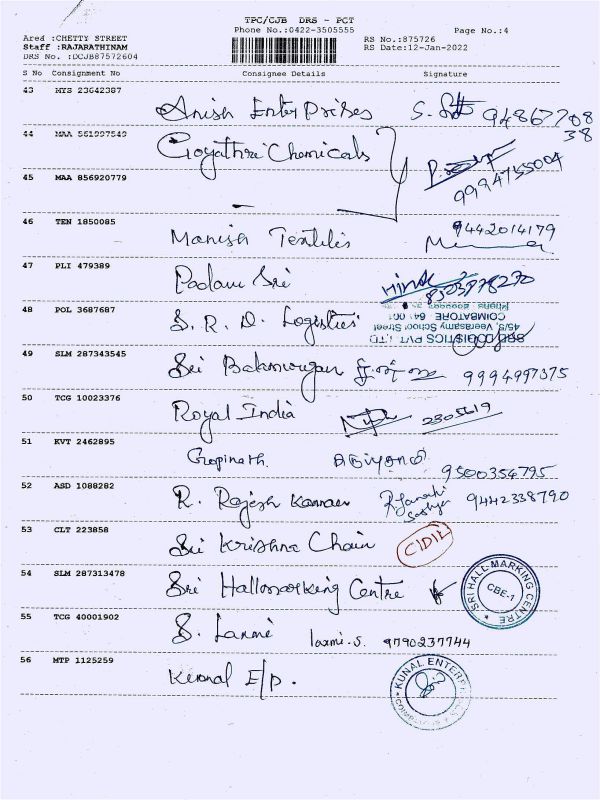 TPC/CJB DRS - PCT
Phone No.:0422-3505555
Page No.:4
Ared :CHETTY STREET
RS No.:875726
Staff :RAJARATHINAM
RS Date:12-Jan-2022
DRS No. :DCJB87572604
S No Consignment No Consignee Details Signature
43 MYS 23642387
Anish Enterprises S. 94867708
38
44 MAA 561997549
Goyathri Chemicals
9994755004
45 MAA 856920779
46 TEN 1850085
9442014179
Manish Textiles
47 PLI 479389
Padam Sri
48 POL 3687687
S. R. D. Logistics
SRD LOGISTICS PVT. LTD
45/9, Veerasamy School Street
COIMBATORE 641 001
49 SLM 287343545
Sri Balamurugan 9994997375
50 TCG 10023376
Royal India 2305619
51 KVT 2462895
Gopinath.
9500354795
52 ASD 1088282
R. Rajesh Kannan 9442338790
53 CLT 223858
Sri Krishna Chain CIDIL
54 SLM 287313478
Sri Hallmarking Centre
SRI HALL MARKING CENTRE
CBE-1
55 TCG 40001902
S. Laxmi laxmi.s. 9790237744
56 MTP 1125259
Kunal E/p.
KUNAL ENTERPRISES